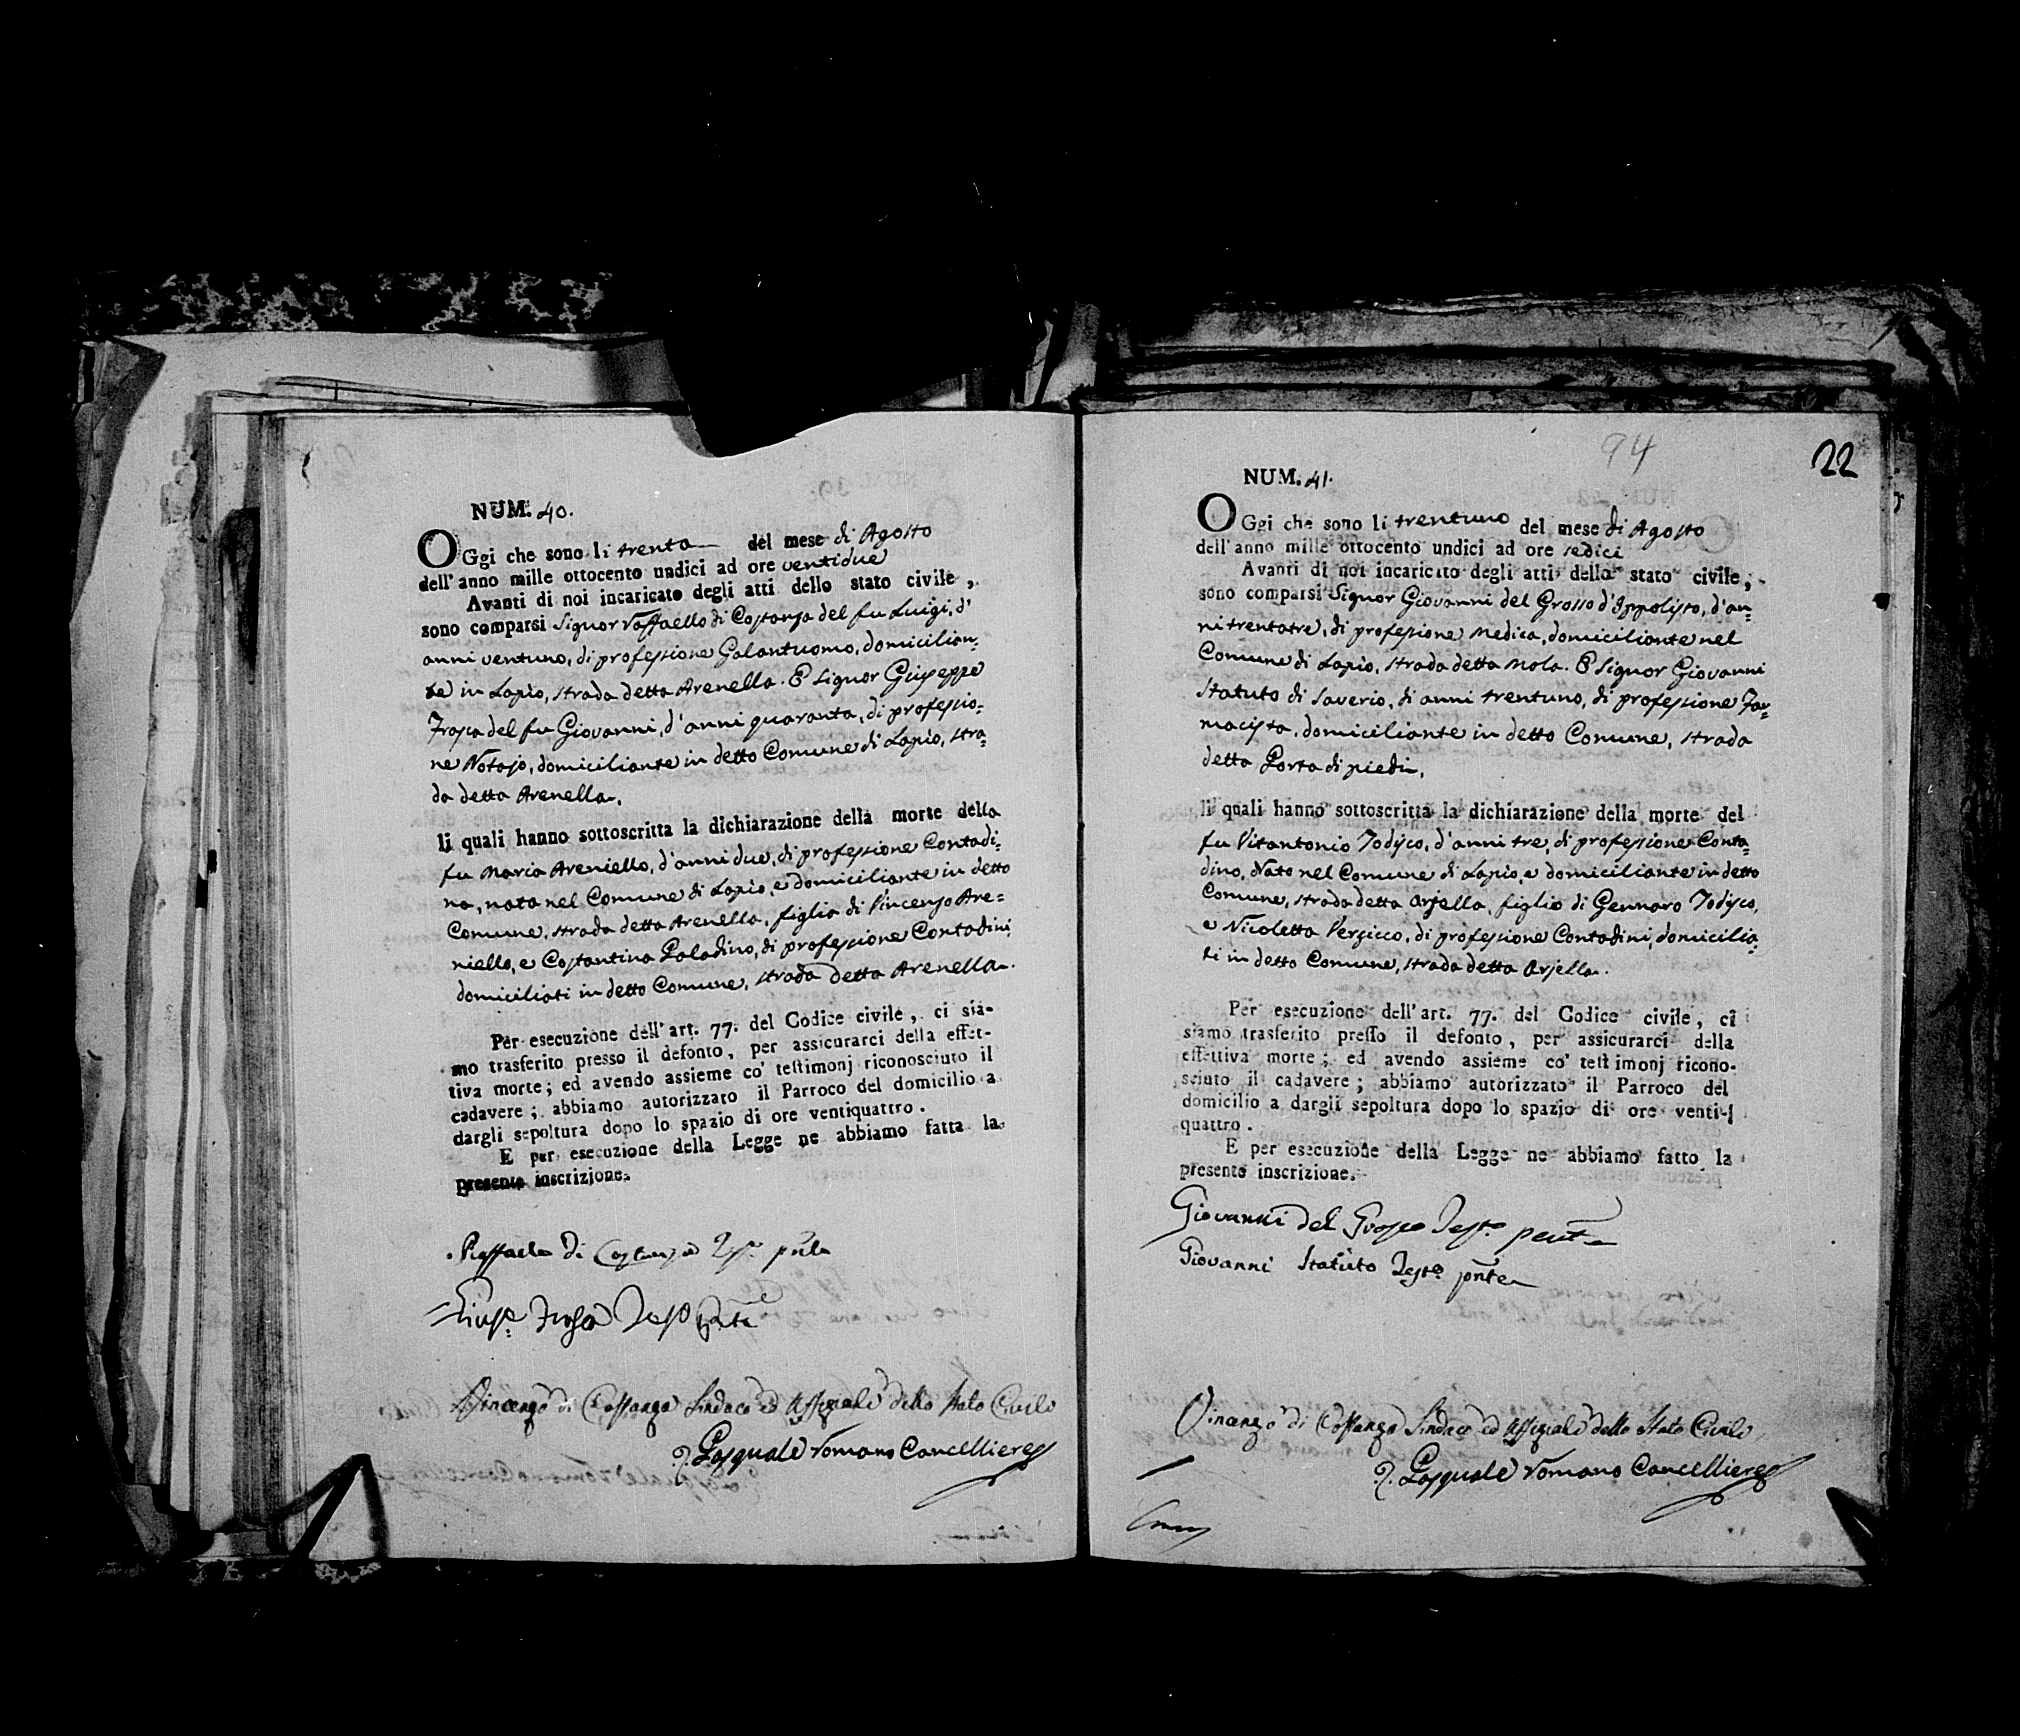 NUM. 40.
OGgi che sono li trenta del mese di Agosto
dell'anno mille ottocento undici ad ore ventidue
Avanti di noi incaricato degli atti dello stato civile,
sono comparsi Signor Raffaello di Costanza del fu Luigi, d'
anni ventuno, di professione Galantuomo, domicilian=
te in Lapio, strada detta Arenella. E Signor Giuseppe
Trosa del fu Giovanni, d'anni quaranta, di professio=
ne Notajo, domiciliante in detto Comune di Lapio, stra=
da detta Arenella.
li quali hanno sottoscritta la dichiarazione della morte della
fu Maria Areniello, d'anni due, di professione Contadi=
na, nata nel Comune di Lapio, e domiciliante in detto
Comune, strada detta Arenella, figlia di Vincenzo Are=
niello, e Costantina Paladino, di professione Contadini
domiciliati in detto Comune, strada detta Arenella.
Per esecuzione dell'art. 77. del Codice civile, ci sia-
mo trasferito presso il defonto, per assicurarci della effet-
tiva morte; ed avendo assieme co' testimonj riconosciuto il
cadavere; abbiamo autorizzato il Parroco del domicilio a
dargli sepoltura dopo lo spazio di ore ventiquattro.
E per esecuzione della Legge ne abbiamo fatta la
presente inscrizione.
Raffaele di Costanza Testo pnte
Giuspe Test
Vincenzo di Costanza Sindaco ed Uffiziale dello Stato Civile
D. Pasquale Romano Cancelliere
94
22
NUM. 41.
OGgi che sono li trentuno del mese di Agosto
dell'anno mille ottocento undici ad ore sedici
Avanti di noi incaricato degli atti dello stato civile,
sono comparsi Signor Giovanni del Grosso d'Ippolisto, d'an=
ni trentatre, di professione Medica, domiciliante nel
Comune di Lapio, strada detta Mola. E Signor Giovanni
Statuto di Saverio, di anni trentuno, di professione Far=
macista, domiciliante in detto Comune, strada
detta Porta di piedi.
li quali hanno sottoscritta la dichiarazione della morte del
fu Vitantonio Iodisco, d'anni tre, di professione Conta=
dino, Nato nel Comune di Lapio, e domiciliante in detto
Comune, strada detta Arjella, figlio di Gennaro Iodisco,
e Nicoletta Verzicco, di professione Contadini, domicilia=
ti in detto Comune, strada detta Arjella.
Per esecuzione dell'art. 77. del Codice civile, ci
siamo trasferito presso il defonto, per assicurarci della
effettiva morte; ed avendo assieme co' testimonj ricono-
sciuto il cadavere; abbiamo autorizzato il Parroco del
domicilio a dargli sepoltura dopo lo spazio di ore venti-
quattro.
E per esecuzione della Legge ne abbiamo fatto la
presente inscrizione.
Giovanni del Grosso Testo
Giovanni Statuto Testo pnte
Vincenzo di Costanza Sindaco ed Uffiziale dello Stato Civile
D. Pasquale Romano Cancelliere